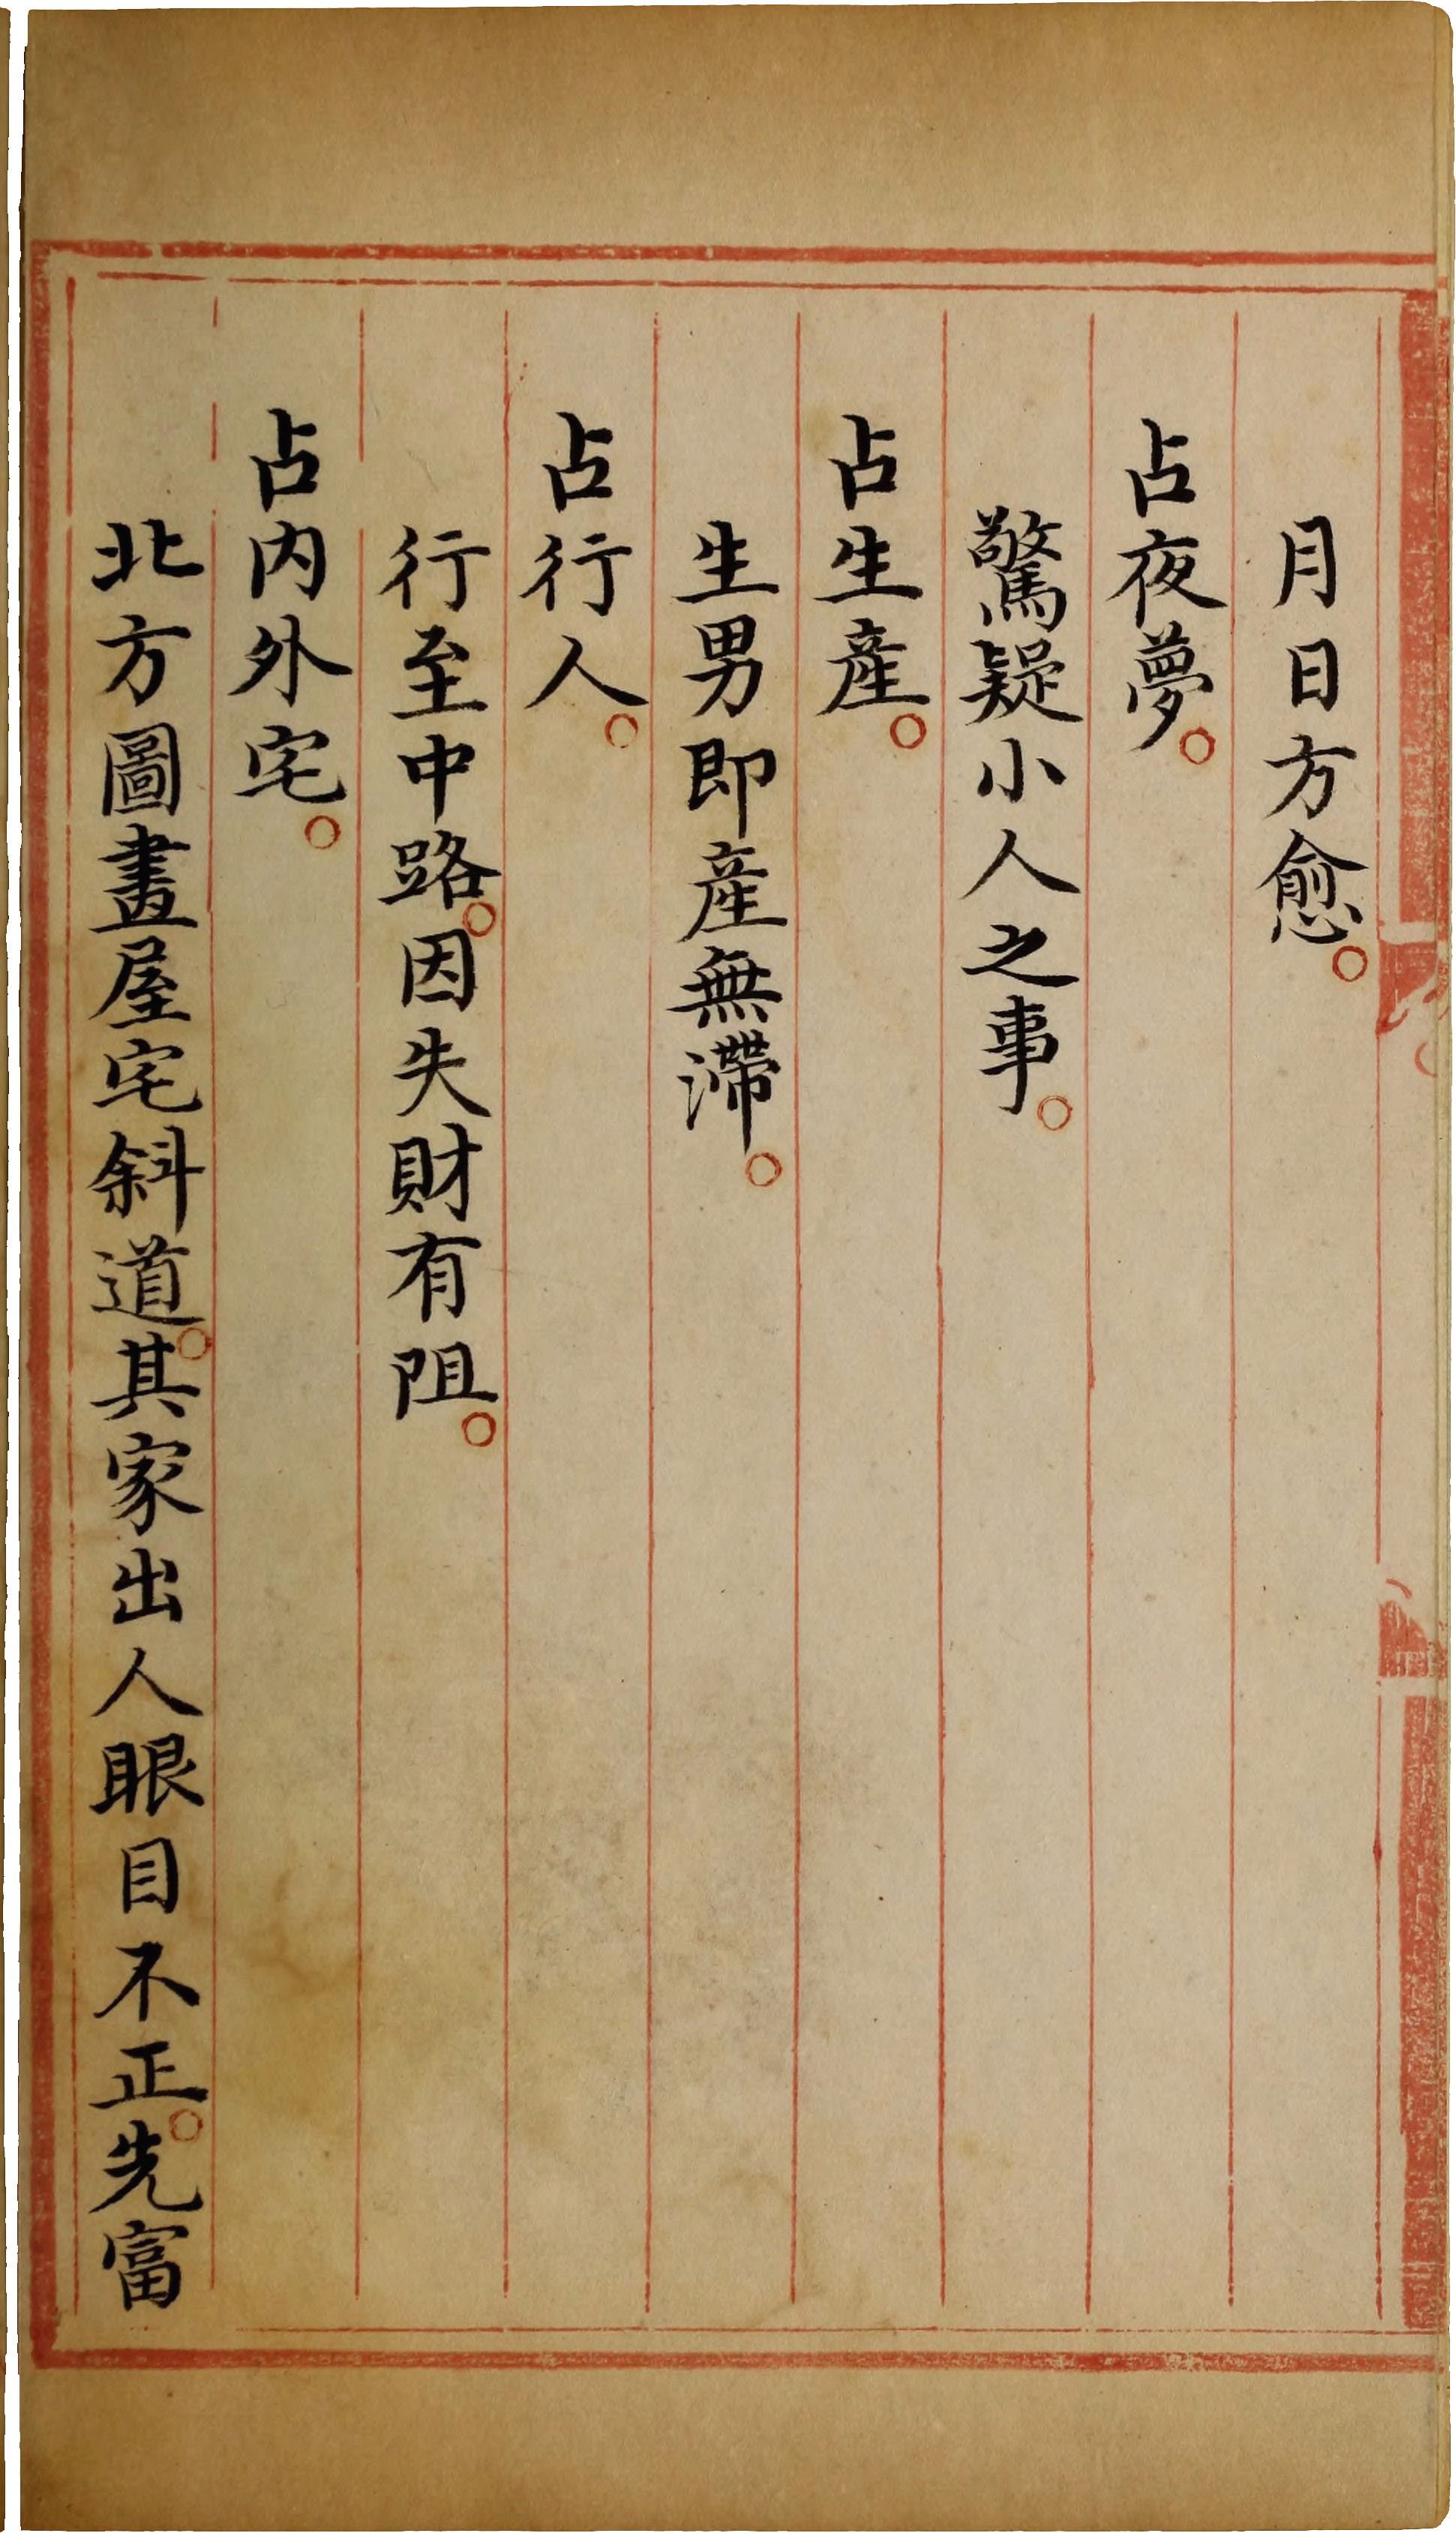 月日方愈。
占夜夢。
驚疑小人之事。
占生產。
生男即產無滯。
占行人。
行至中路。因失財有阻。
占內外宅。
北方圖畫屋宅斜道。其家出人眼目不正。先富